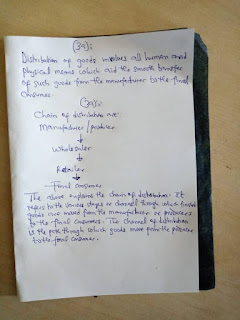 (3a)i
Distribution of goods involves all human and
physical means which aid the smooth transfer
of such goods from the manufacturer to the final
consumer.
(3a)ii
Chain of distribution are
Manufacturer/producer
↓
Wholesaler
↓
Retailer
↓
Final consumer
The above explains the chain of distribution. It
refers to the various stages or channels through which finished
goods are moved from the manufacturer or producers
to the final consumers. The channel of distribution
is the path through which goods move from the producer
to the final consumer.